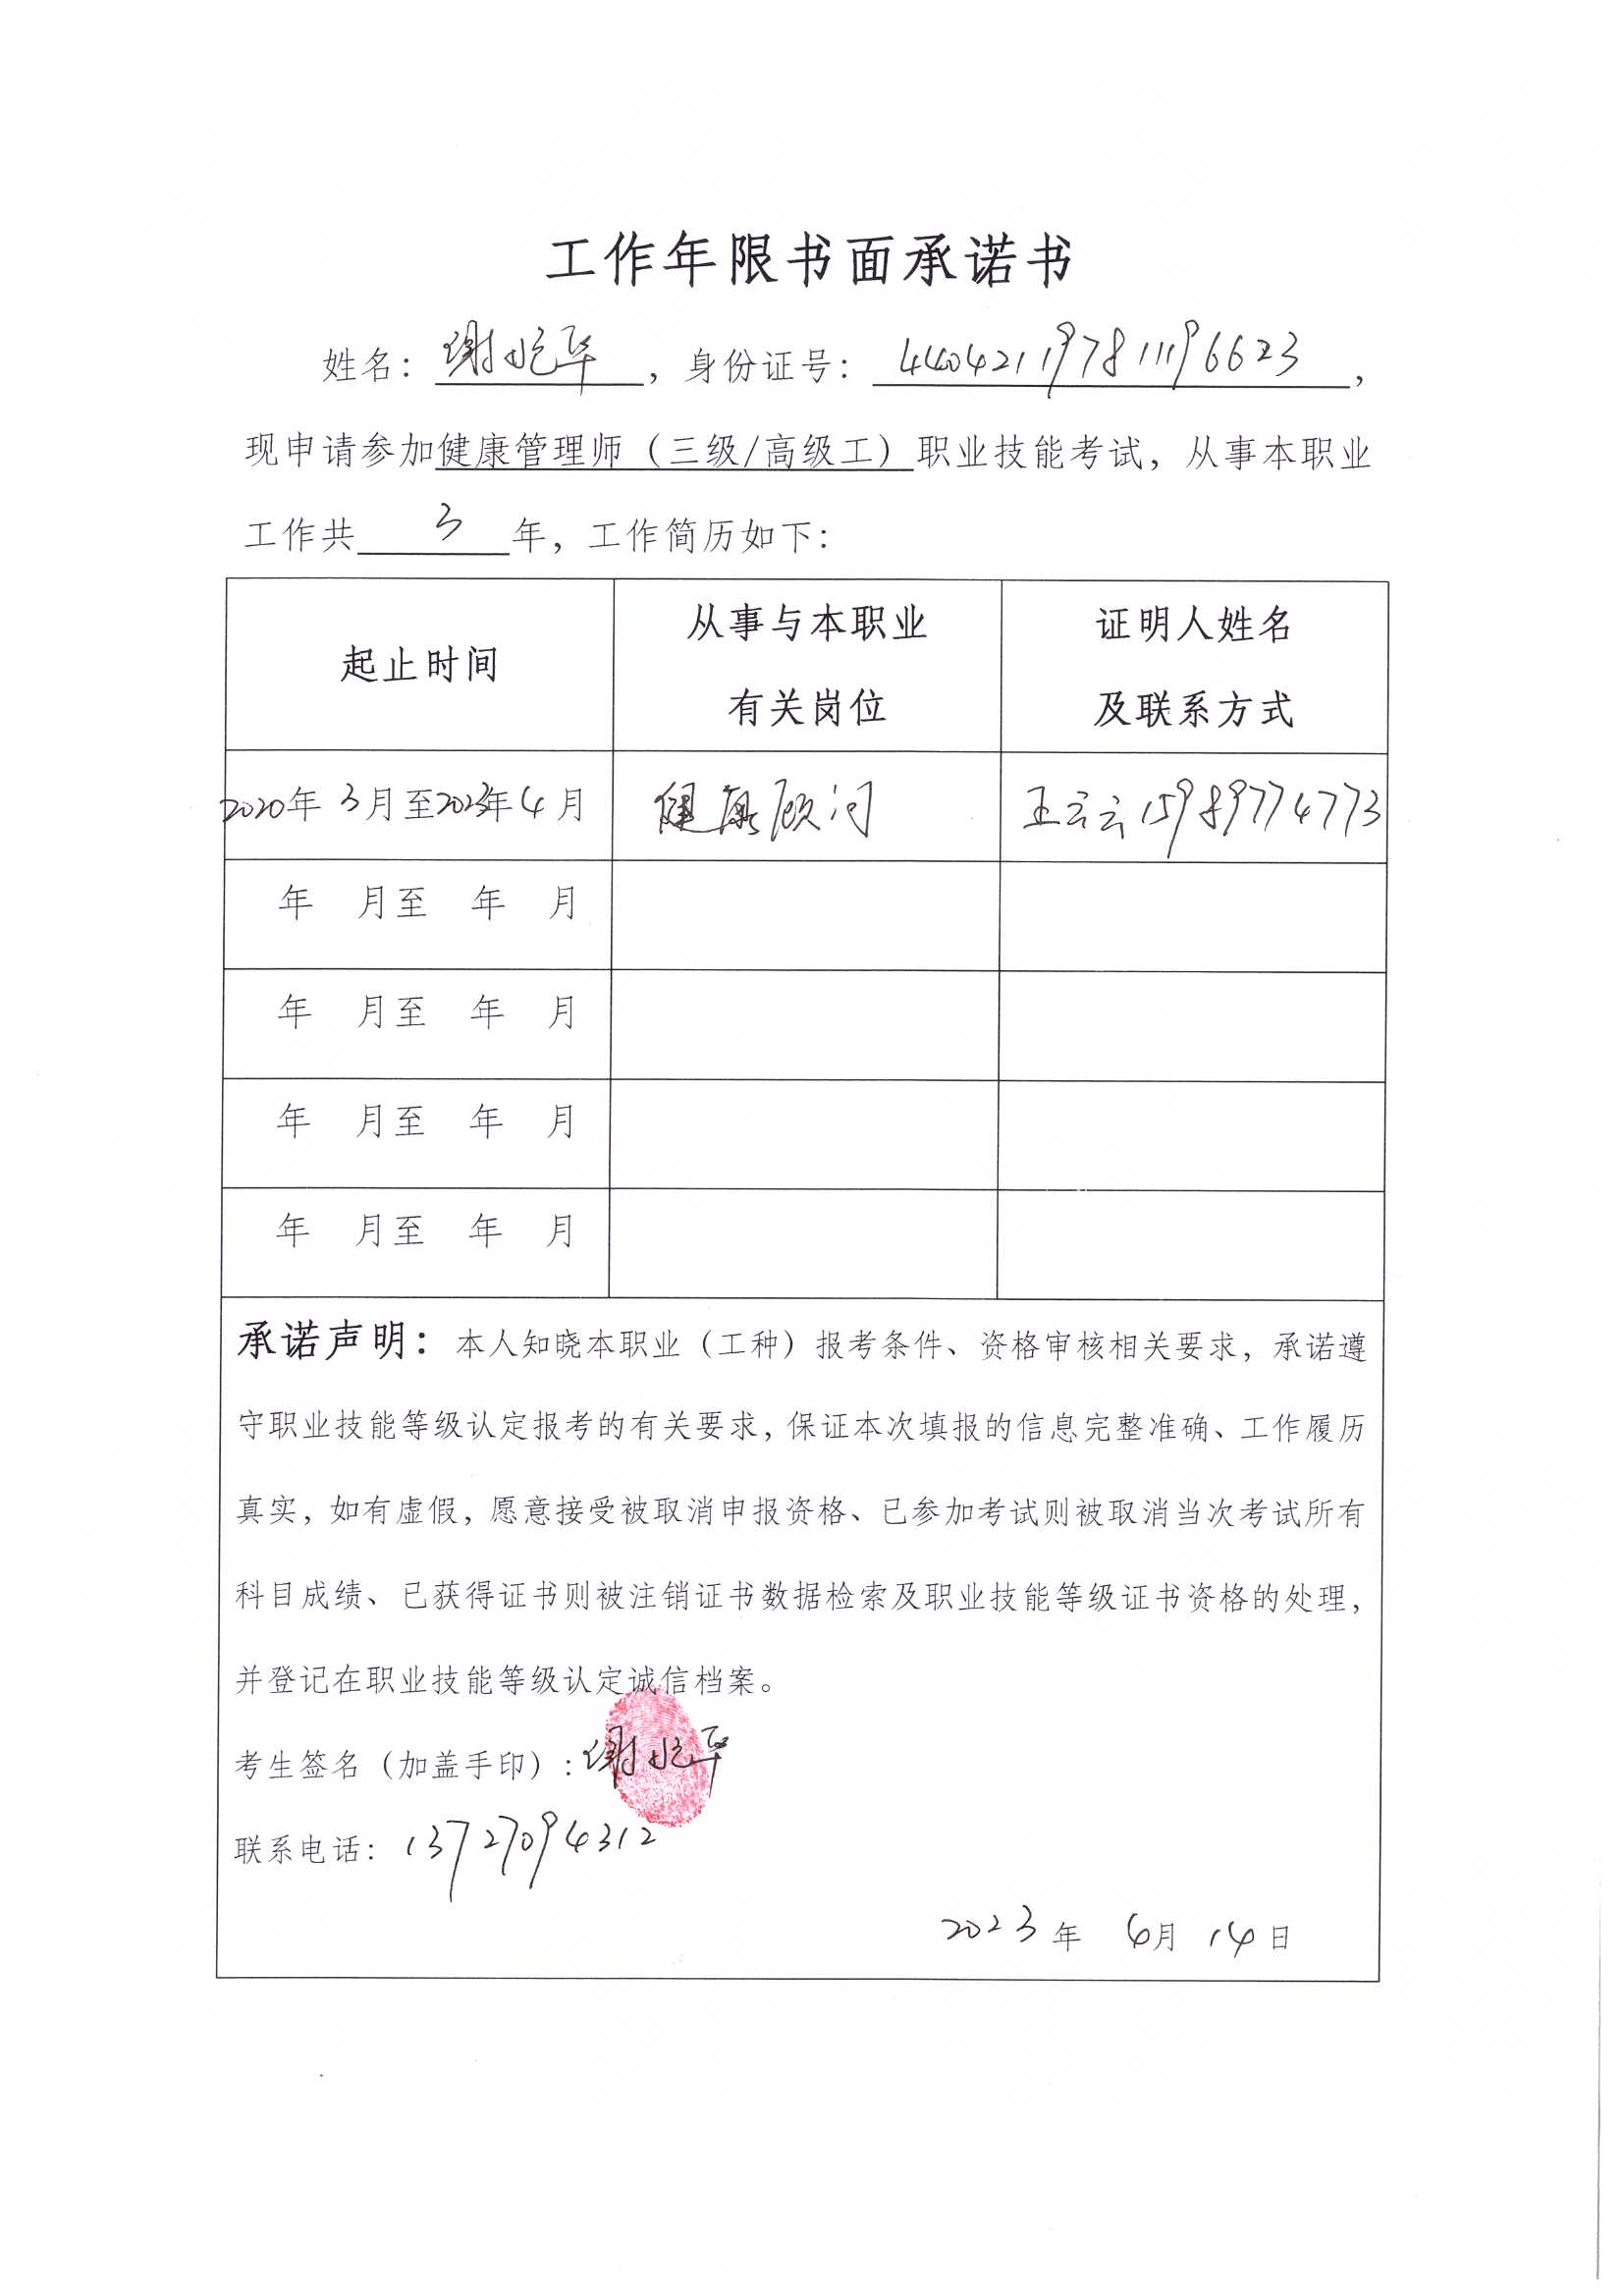 工作年限书面承诺书
姓名：谢 华，身份证号：440421197811196623，
现申请参加健康管理师（三级/高级工）职业技能考试，从事本职业
工作共 3 年，工作简历如下：
起止时间 从事与本职业 有关岗位 证明人姓名 及联系方式
2020年 3月至2023年4月 健康顾问 王云云15989774773
年 月至 年 月
年 月至 年 月
年 月至 年 月
年 月至 年 月
承诺声明：本人知晓本职业（工种）报考条件、资格审核相关要求，承诺遵
守职业技能等级认定报考的有关要求，保证本次填报的信息完整准确、工作履历
真实，如有虚假，愿意接受被取消申报资格、已参加考试则被取消当次考试所有
科目成绩、已获得证书则被注销证书数据检索及职业技能等级证书资格的处理，
并登记在职业技能等级认定诚信档案。
考生签名（加盖手印）：谢 华
联系电话：13727094312
2023年 6月 14日